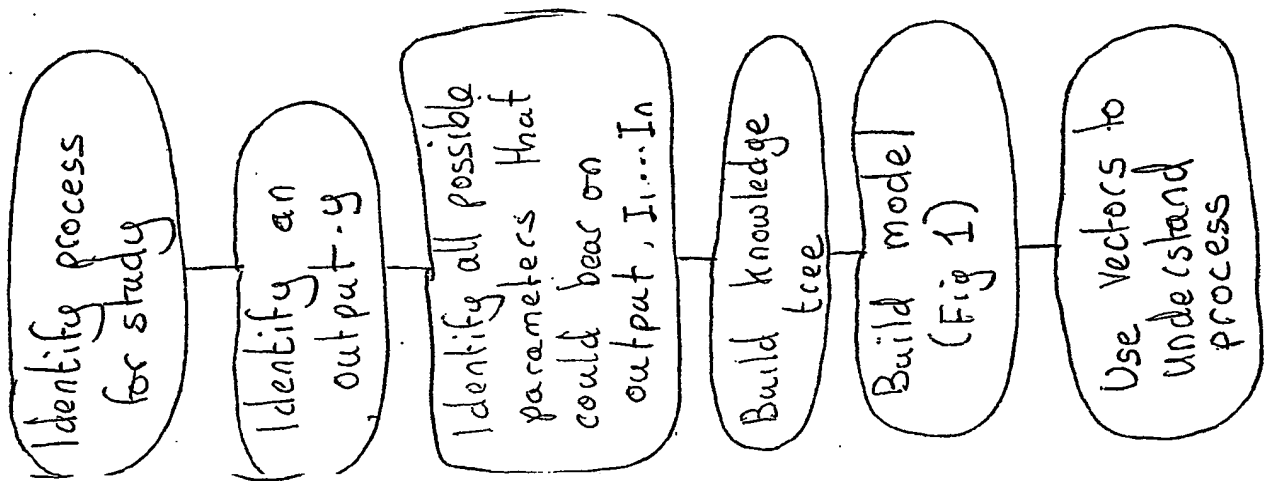 Identify process
for study
Identify an
output.y
Identify all possible
parameters that
could bear on
output, I1...In
Build knowledge
tree
Build model
(Fig 1)
Use Vectors to
understand
process